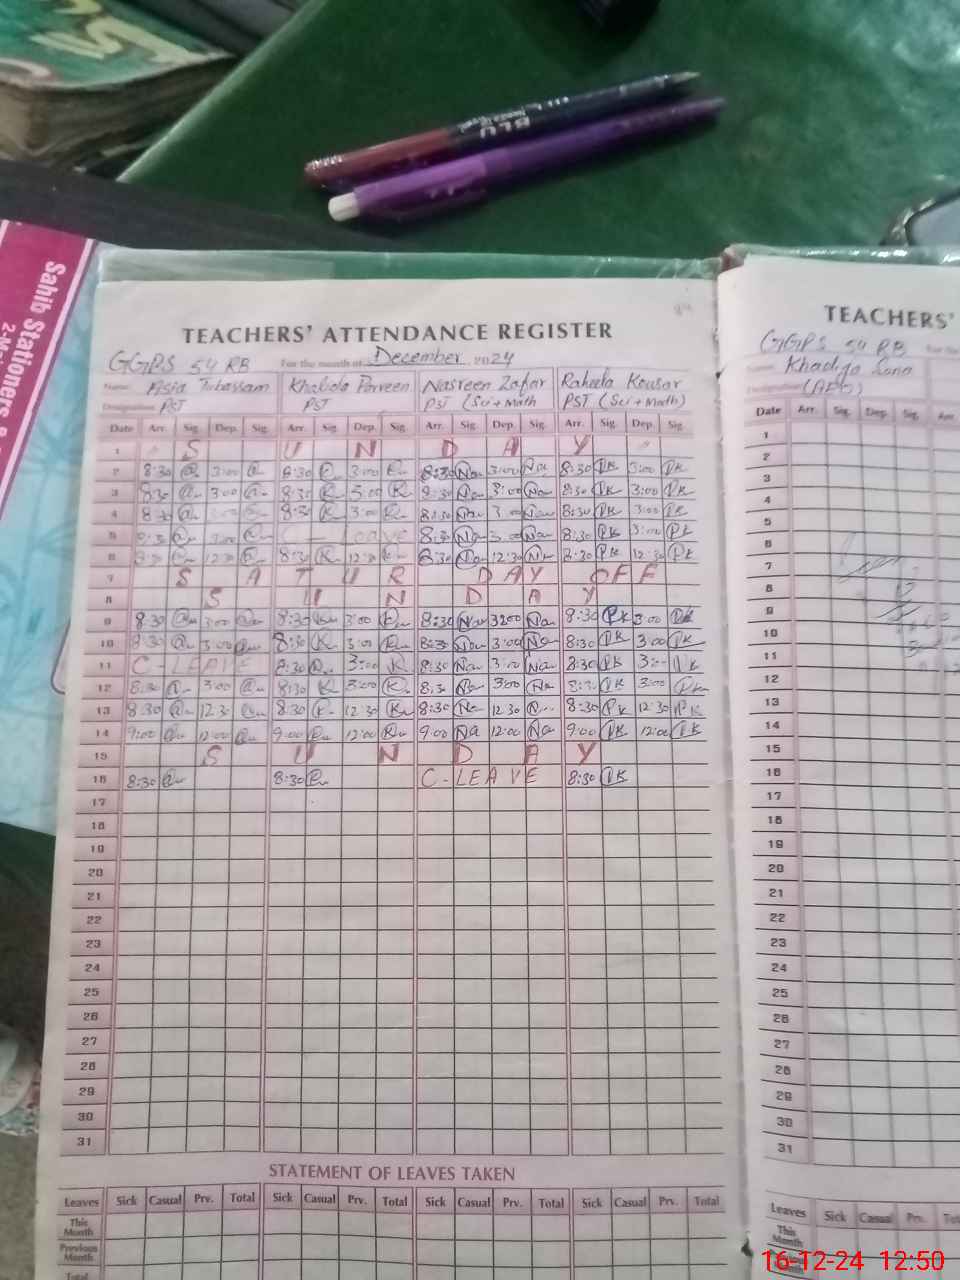 BLU
Sahib Stationers &
TEACHERS' ATTENDANCE REGISTER
GGPS 54 RB For the month of December 2024
Name: Asia Tabassam Khalida Parveen Nasreen Zafar Raheela Kousar
Designation: PST PST PST (Sci + Math PST (Sci + Math)
Date Arr. Sig. Dep. Sig. Arr. Sig. Dep. Sig. Arr. Sig. Dep. Sig. Arr. Sig. Dep. Sig.
1 S U N D A Y
2 8:30 3:00 8:30 3:00 8:30 Na 3:00 Na 8:30 3:00
3 8:30 3:00 8:30 3:00 8:30 Na 3:00 Na 8:30 3:00
4 8:30 3:00 8:30 3:00 8:30 Na 3:00 Na 8:30 3:00
5 8:30 3:00 C - Leave 8:30 Na 3:00 Na 8:30 3:00
6 8:30 12:30 8:30 12:30 8:30 Na 12:30 Na 8:30 12:30
7 S A T U R D A Y O F F
8 S U N D A Y
9 8:30 3:00 8:30 3:00 8:30 Na 3:00 Na 8:30 3:00
10 8:30 3:00 8:30 3:00 8:30 Na 3:00 Na 8:30 3:00
11 C - LEAVE 8:30 3:00 8:30 Na 3:00 Na 8:30 3:00
12 8:30 3:00 8:30 3:00 8:30 Na 3:00 Na 8:30 3:00
13 8:30 12:30 8:30 12:30 8:30 Na 12:30 8:30 12:30
14 9:00 12:00 9:00 12:00 9:00 Na 12:00 Na 9:00 12:00
15 S U N D A Y
16 8:30 8:30 C - LEAVE 8:30
17
18
19
20
21
22
23
24
25
26
27
28
29
30
31
STATEMENT OF LEAVES TAKEN
Leaves Sick Casual Prv. Total Sick Casual Prv. Total Sick Casual Prv. Total Sick Casual Prv. Total
This Month
Previous Month
Total
TEACHERS'
GGPS 54 RB
Name: Khadija Sana
Designation: (AEO)
Date Arr. Sig. Dep. Sig. Arr.
1
2
3
4
5
6
7
8
9
10
11
12
13
14
15
16
17
18
19
20
21
22
23
24
25
26
27
28
29
30
31
Leaves Sick Casual Prv.
This Month
16-12-24 12:50